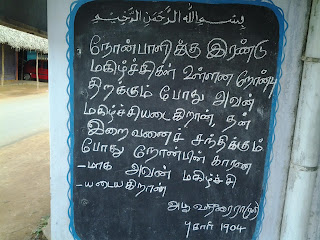 بِسْمِ اللهِ الرَّحْمٰنِ الرَّحِيْمِ
நோன்பாளிக்கு இரண்டு
மகிழ்ச்சிகள் உள்ளன நோன்பு
திறக்கும் போது அவன்
மகிழ்ச்சியடைகிறான். தன்
இறைவனைச் சந்திக்கும்
போது நோன்பின் காரண
-மாக அவன் மகிழ்ச்சி
-யடைகிறான்
புகாரி 1904